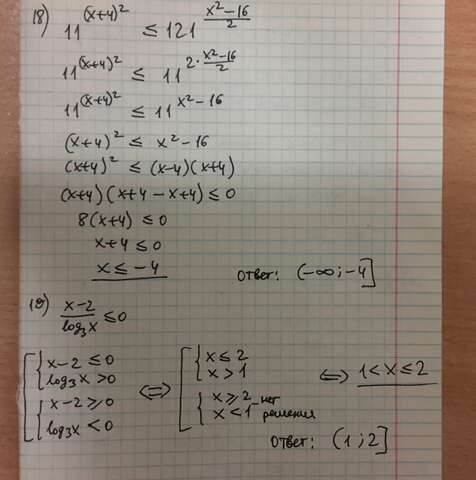 18) 11^(x+4)² ≤ 121^((x²-16)/2)
11^(x+4)² ≤ 11^(2·(x²-16)/2)
11^(x+4)² ≤ 11^(x²-16)
(x+4)² ≤ x²-16
(x+4)² ≤ (x-4)(x+4)
(x+4)(x+4-x+4) ≤ 0
8(x+4) ≤ 0
x+4 ≤ 0
x ≤ -4
ответ: (-∞;-4]
19) (x-2)/(log₃x) ≤ 0
[ { x-2 ≤ 0 ⇔ [ { x ≤ 2 ⇔ 1 < x ≤ 2
log₃x > 0 x > 1
{ x-2 ≥ 0 { x ≥ 2 - нет
log₃x < 0 x < 1 решения
Ответ: (1;2]